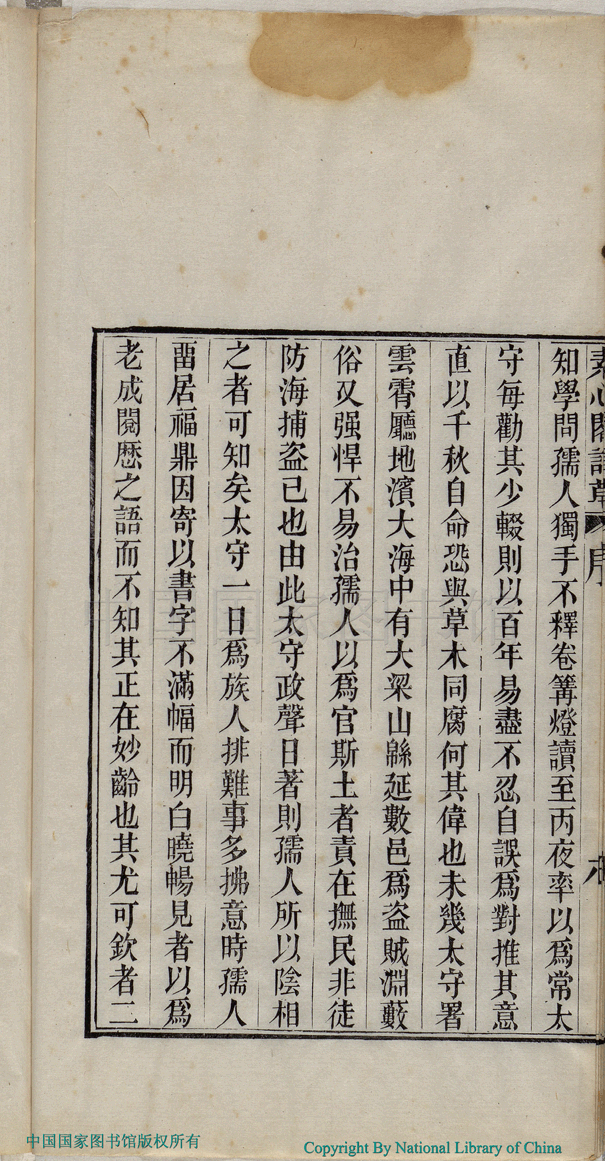 素心閣詩草 序 六
知學問孺人獨手不釋卷篝燈讀至丙夜率以爲常太
守每勸其少輟則以百年易盡不忍自誤爲對推其意
直以千秋自命恐與草木同腐何其偉也未幾太守署
雲霄廳地濱大海中有大梁山緜延數邑爲盜賊淵藪
俗又强悍不易治孺人以爲官斯土者責在撫民非徒
防海捕盜已也由此太守政聲日著則孺人所以陰相
之者可知矣太守一日爲族人排難事多拂意時孺人
畱居福鼎因寄以書字不滿幅而明白曉暢見者以爲
老成閱歷之語而不知其正在妙齡也其尤可欽者二
中国国家图书馆版权所有
Copyright By National Library of China